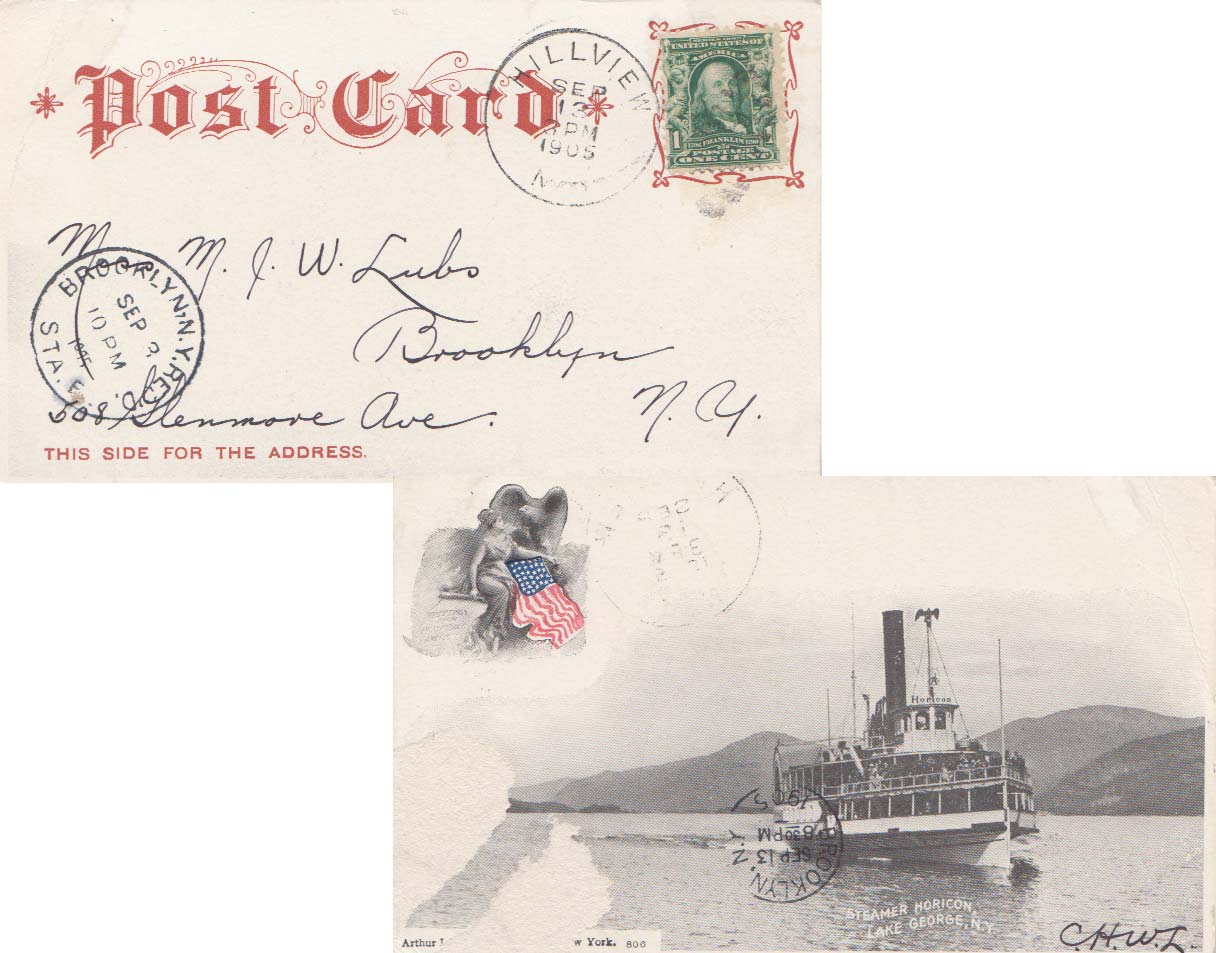 Post Card
HILLVIEW
SEP
13
3 PM
1905
N
SERIES 1902
UNITED STATES OF
AMERICA
1706 FRANKLIN 1790
1 POSTAGE
ONE CENT
M. J. W. Lubs
Brooklyn
508 Glenmore Ave. N. Y.
BROOKLYN, N.Y. REC'D.
SEP
10 PM
STA.
THIS SIDE FOR THE ADDRESS.
Horicon
1905
8 30 PM
SEP 13
BROOKLYN, N.Y.
STEAMER HORICON,
LAKE GEORGE, N.Y.
Arthur
w York. 806
C.H.W.L.